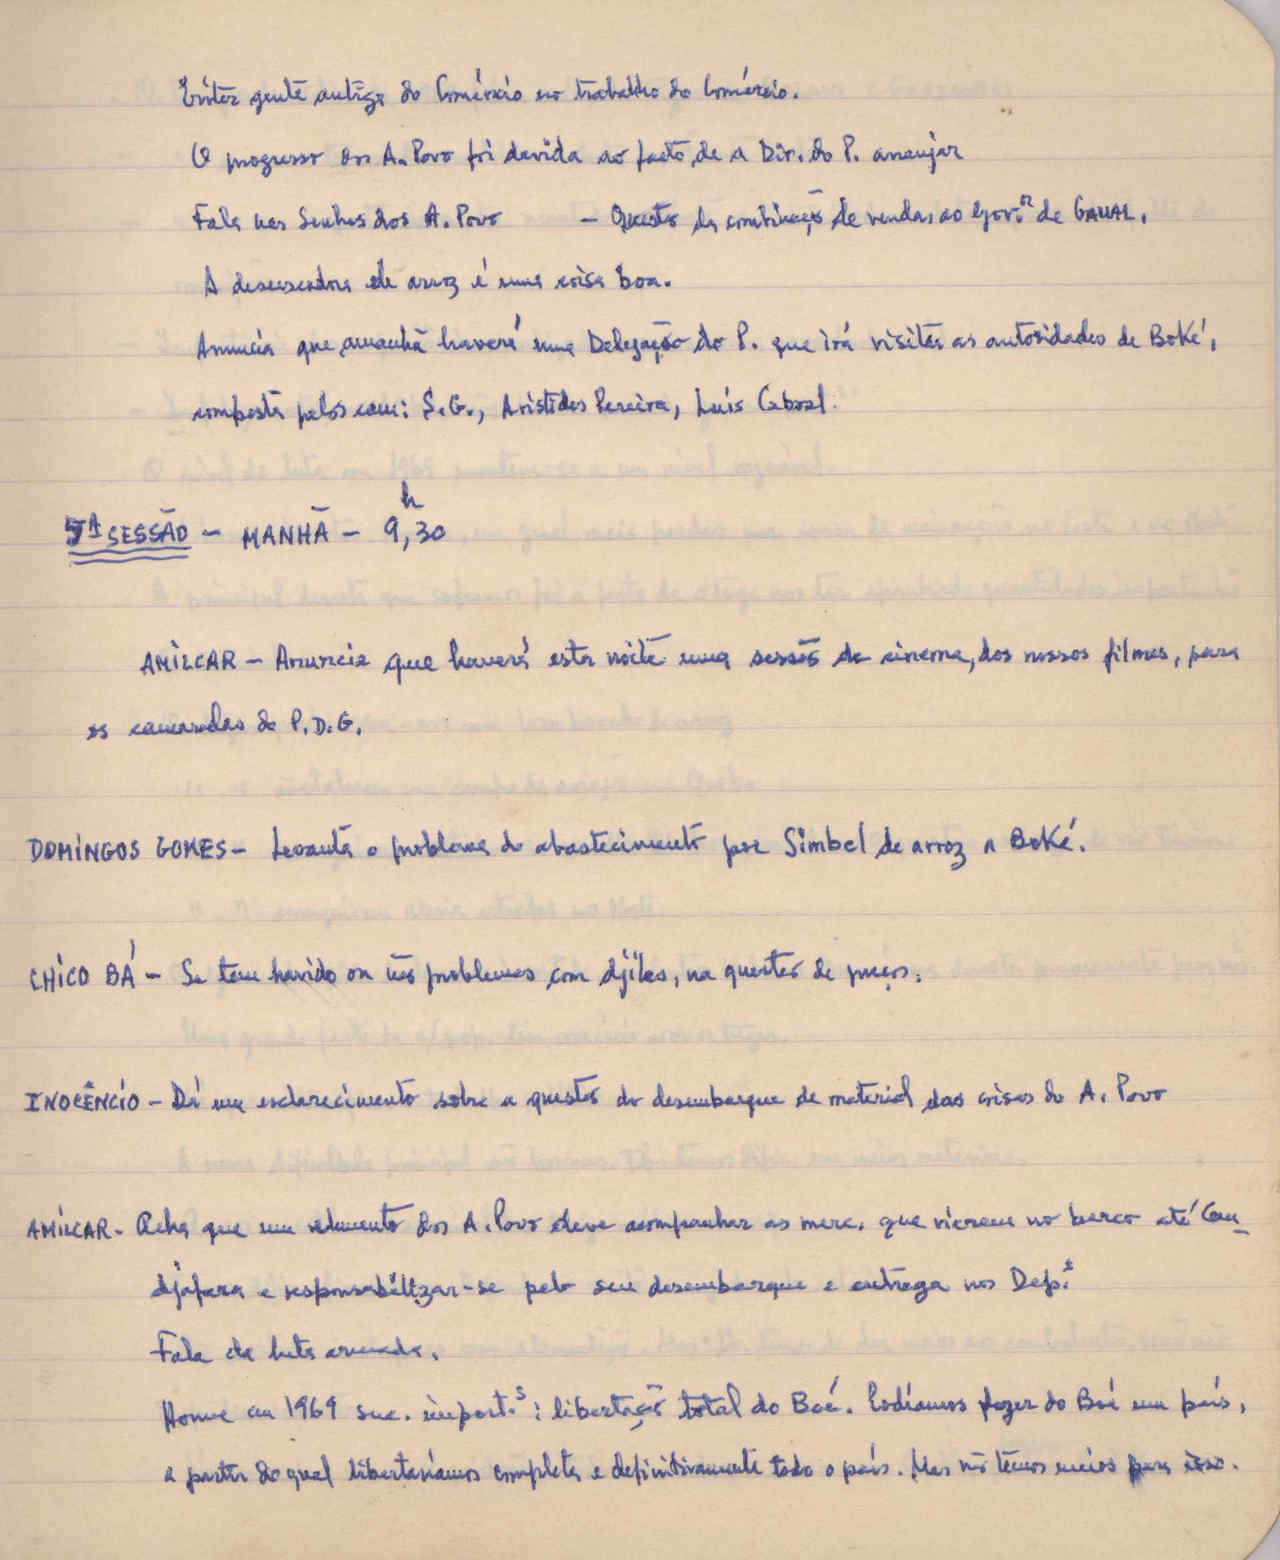 Evitar gente antiga do Comércio no trabalho do Comércio.
O progresso dos A. Povo foi devida ao facto de a Dir. do P. arranjar
Fala nas Senhas dos A. Povo - Questão da combinação de vendas ao Gov.or de GAUAL.
A descascadora de arroz é uma coisa boa.
Anuncia que amanhã haverá uma Delegação do P. que irá visitar as autoridades de Boké,
composta pelos cam: S.G., Aristides Pereira, Luís Cabral.
5ª SESSÃO - MANHÃ - 9,30 h
AMÍLCAR - Anuncia que haverá esta noite uma sessão de cinema, dos nossos filmes, para
os camaradas do P.D.G.
DOMINGOS GOMES - Levanta o problema do abastecimento por Simbel de arroz a Boké.
CHICO BÁ - Se tem havido ou não problemas com djilas, na questão de preços.
INOCÊNCIO - Dá um esclarecimento sobre a questão do desembarque de material das coisas do A. Povo
AMÍLCAR - Acha que um elemento dos A. Povo deve acompanhar as merc. que vierem no barco até Can-
djafara e responsabilizar-se pelo seu desembarque e entrega nos Dep.s
Fala da luta armada.
Houve em 1969 suc. import.s: libertação total do Boé. Podíamos fazer do Boé um país,
a partir do qual libertaríamos completa e definitivamente todo o país. Mas não temos meios para isso.